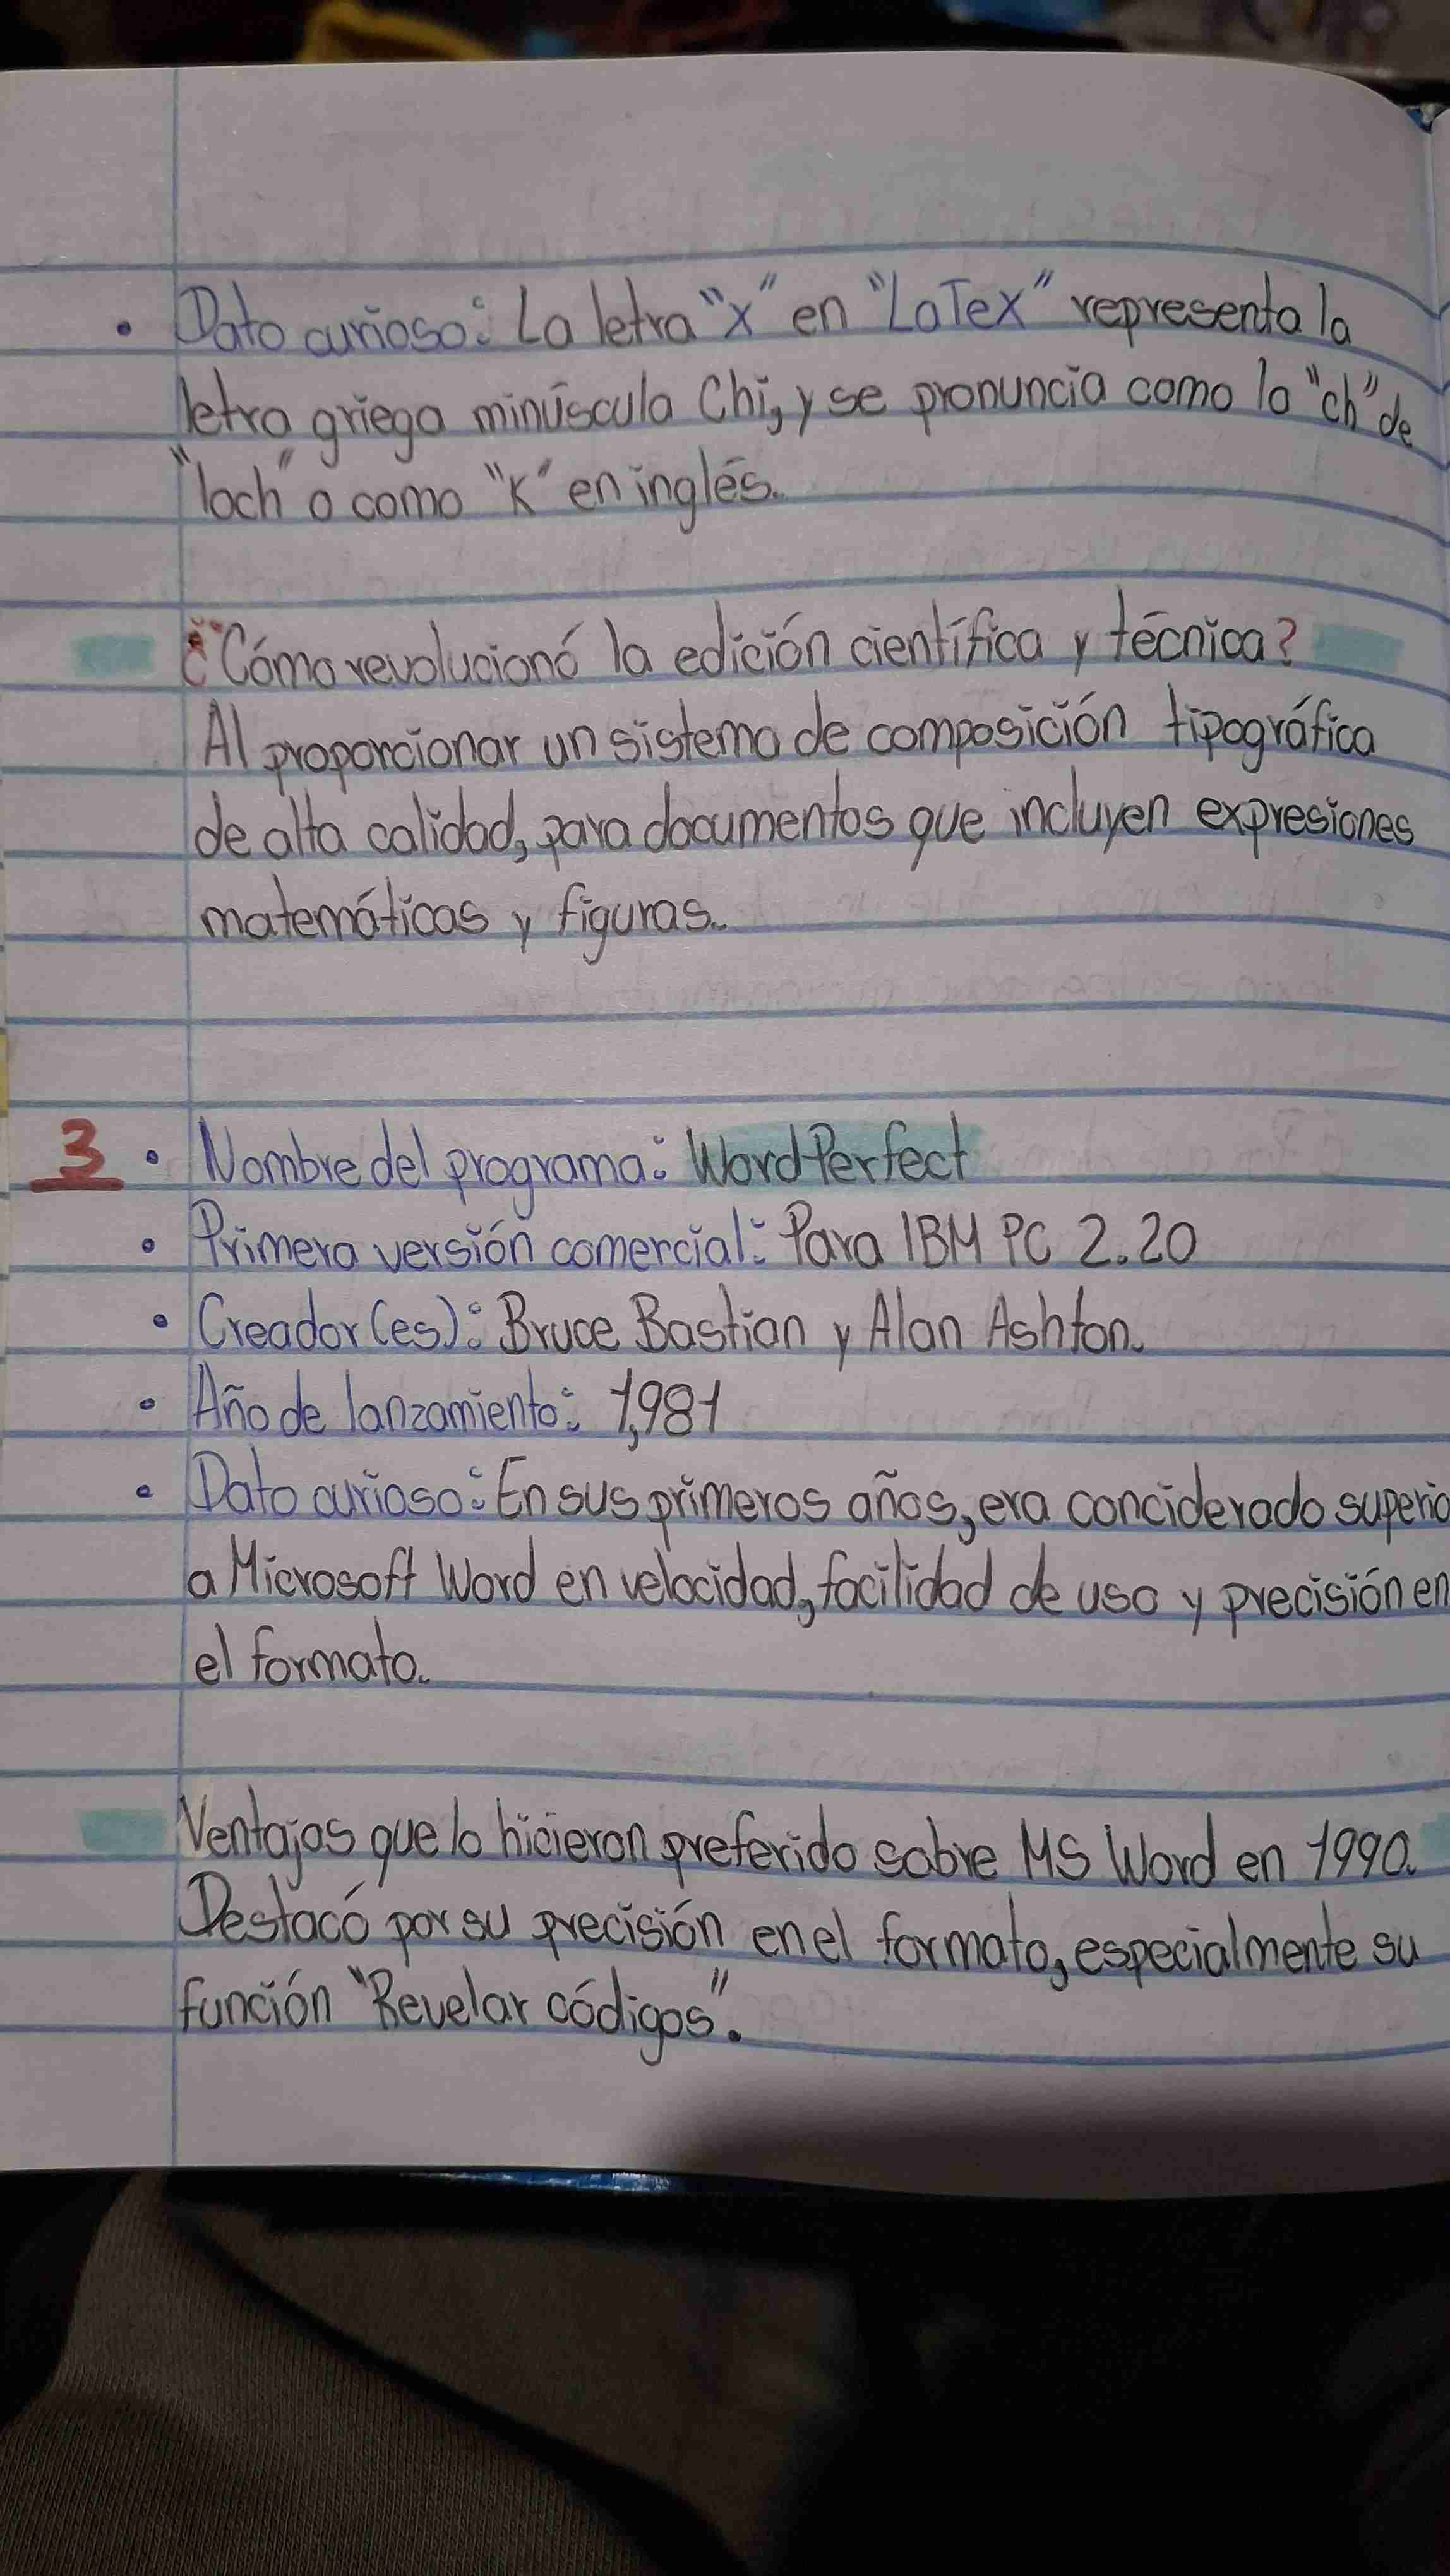 • Dato curioso: La letra "x" en "LaTex" representa la
letra griega minúscula Chi, y se pronuncia como la "ch" de
"loch" o como "K" en inglés.
¿Cómo revolucionó la edición científica y técnica?
Al proporcionar un sistema de composición tipográfica
de alta calidad, para documentos que incluyen expresiones
matemáticas y figuras.
3 • Nombre del programa: WordPerfect
• Primera versión comercial: Para IBM PC 2.20
• Creador(es): Bruce Bastian y Alan Ashton.
• Año de lanzamiento: 1,981
• Dato curioso: En sus primeros años, era conciderado superio
a Microsoft Word en velocidad, facilidad de uso y precisión en
el formato.
Ventajas que lo hicieron preferido sobre MS Word en 1990.
Destacó por su precisión en el formato, especialmente su
función "Revelar códigos".